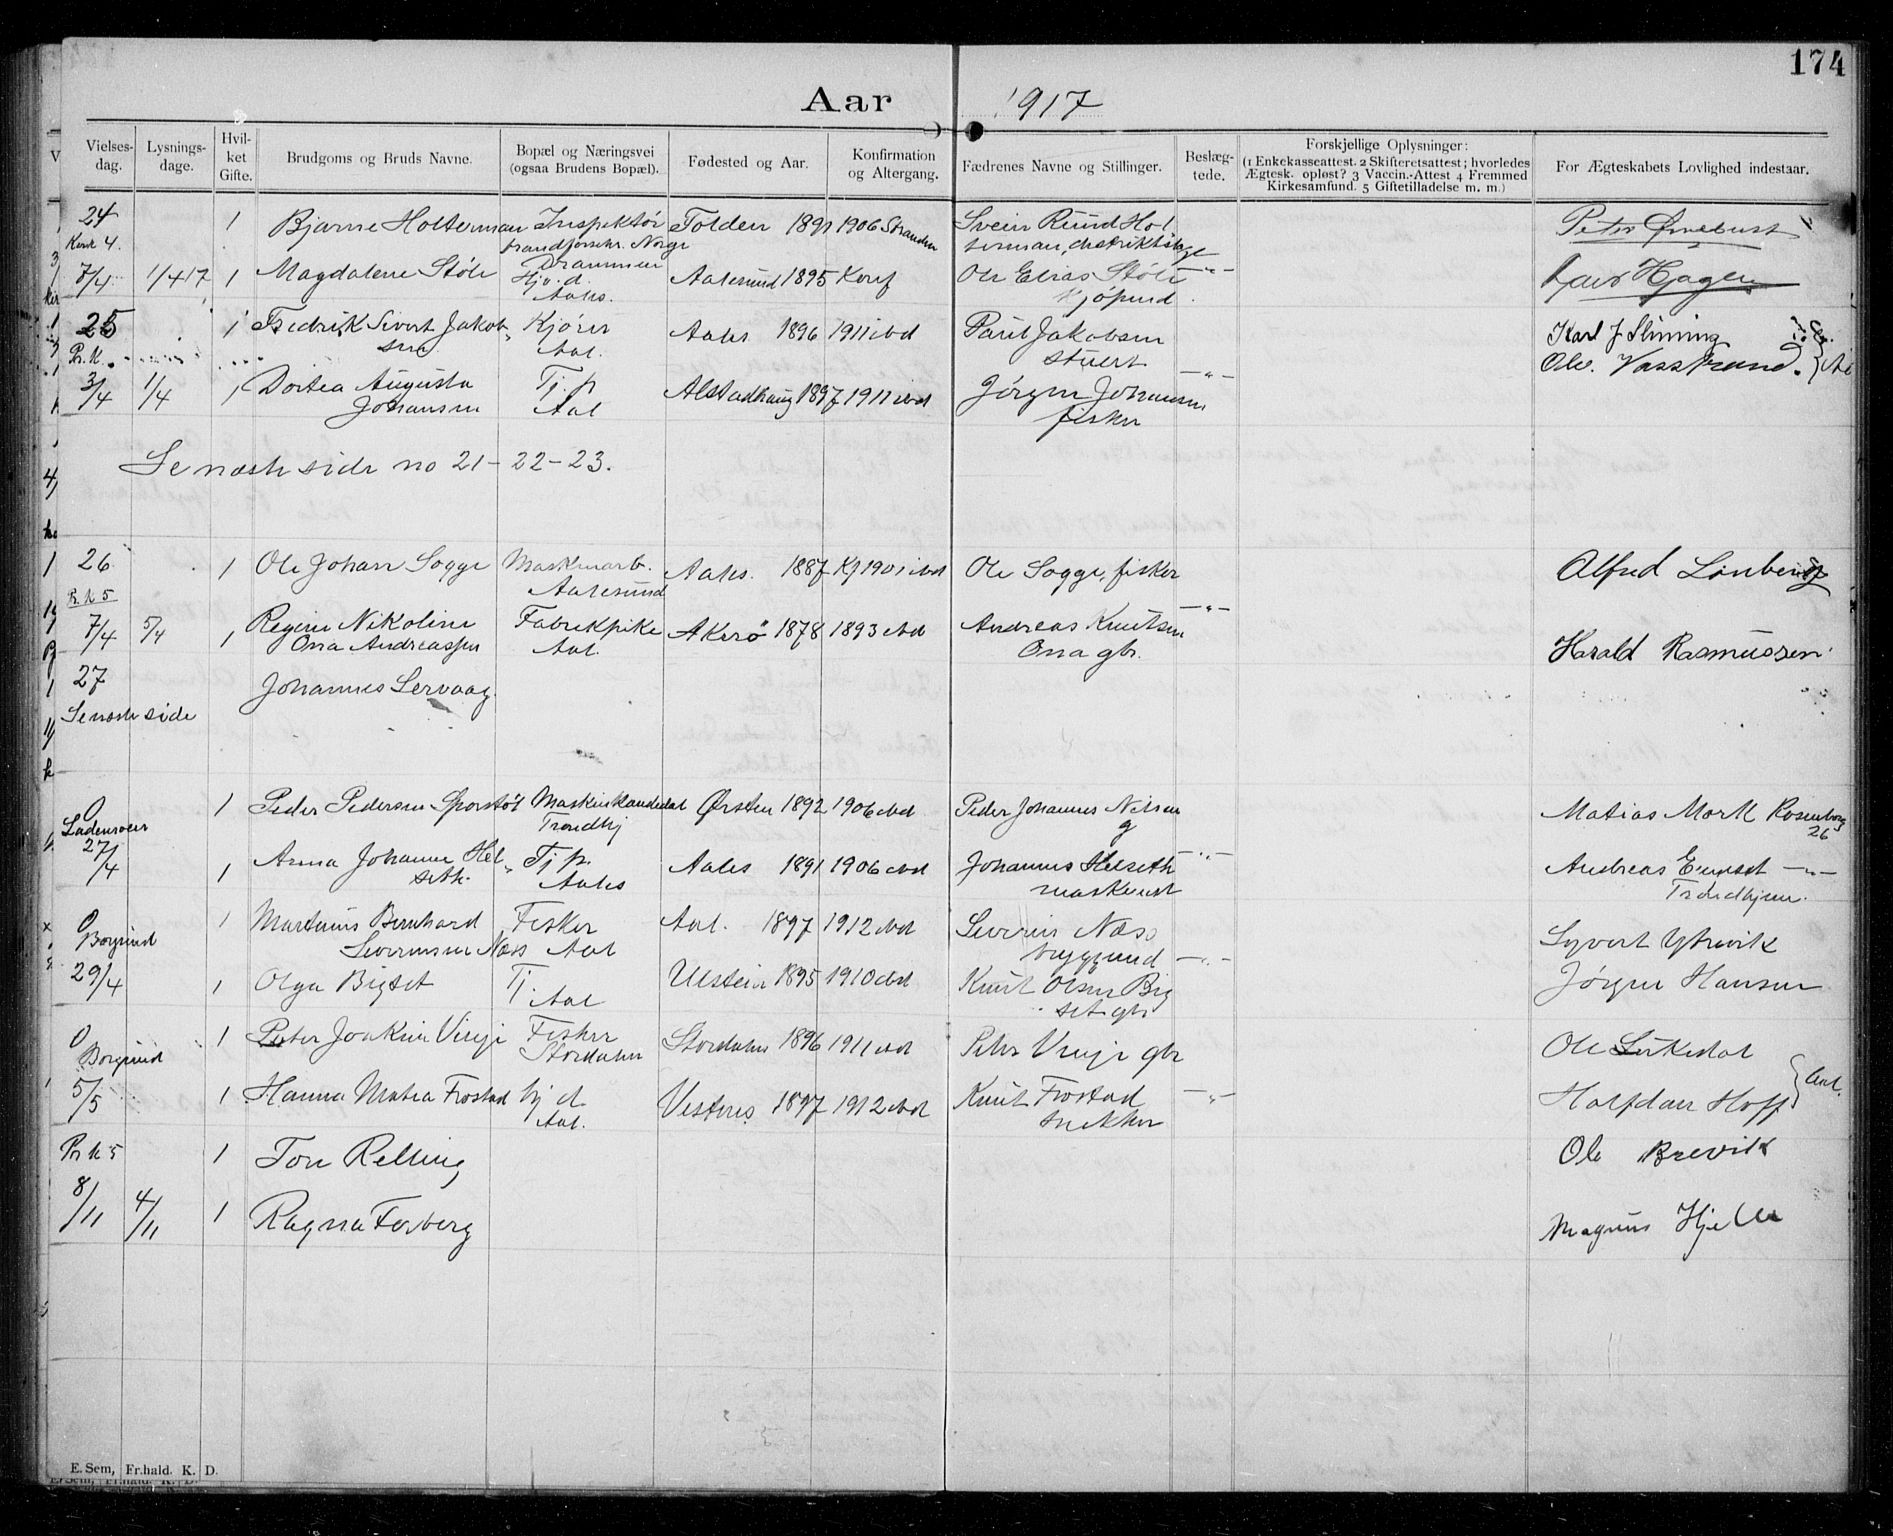 174
Aar 1917
Vielses-dag. Lysnings-dage. Hvil-ket Gifte. Brudgoms og Bruds Navne. Bopæl og Næringsvei (ogsaa Brudens Bopæl). Fødested og Aar. Konfirmation og Altergang. Fædrenes Navne og Stillinger. Beslæg-tede. Forskjellige Oplysninger: (1 Enkekasseattest. 2 Skifteretsattest; hvorledes Ægtesk. opløst? 3 Vaccin.-Attest 4 Fremmed Kirkesamfund. 5 Giftetilladelse m. m.) For Ægteskabets Lovlighed indestaar.
24 1 Bjarne Holterman Inspektør Folden 1891 1906 Stranden Svein Ruud Hol
Kirk 4. Norge terman, distriktslæge
Drammen
7/4 1/4 17 1 Magdalene Støle Hjv. d. Aalesund 1895 Konf Ole Elias Støle —"—
Aales. Kjøpmd.
25 1 Fredrik Sivert Jakob- Kjører Aales 1896 1911 ibd Paul Jakobsen Karl J Slining
Pr. K. sen Aal. stuert Ole. Vasstrand.
3/4 1/4 1 Dortea Augusta Tj. p Alstadhaug 1897 1911 ibd Jørgen Johansen —"—
Johansen Aal fisker
Se næste side no 21 - 22 - 23.
26 1 Ole Johan Sogge Maskinarb. Aales. 1887 Kf 1901 ibd Ole Sogge, fisker Alfred Lønberg
P. k 5 Aalesund
7/4 5/4 1 Regine Nikoline Fabrikpike Akerø 1878 1893 ibd Andreas Knutsen —"— Harald Rasmussen
Ona Andreassen Aal. Ona gbr.
27 Johannes Servaag.
Se næste side
0 1 Peder Pedersen Sporstøl Maskinkandidat Ørsten 1892 1906 ibd Peder Johannes Nilsen Matias Mork Rosenborg
Ladenmoen Trondhj g 26
27/4 1 Anna Johanne Hel- Tj p. Aales 1891 1906 ibd Johannes Helseth —"— Andreas —"—
seth. Aales maskinist Trondhjem.
0 1 Martinus Bernhard Fisker Aal. 1897 1912 ibd Severin Næss Syvert Ytrevik
Borgund Severinsen Næss Aal byggmd —"—
29/4 1 Olga Bigset Tj. Ulstein 1895 1910 ibd Knut Olsen Big Jørgen Hansen
Aal set gbr
0 1 Peter Joakim Vinje Fisker Stordalen 1896 1911 ibd Peter Vinje gbr Ole Lerkedal
Borgund Stordalen
5/5 1 Hanna Matea Frostad hj d. Vestnes 1897 1912 ibd Knut Frostad —"— Halfdan Hoff Aal.
Aal. snekker
Pr k 5 1 Tore Relling Ole Brevik
8/11 4/11 1 Ragna Forberg Magnus Hjelle
E. Sem, Fr.hald. K. D.